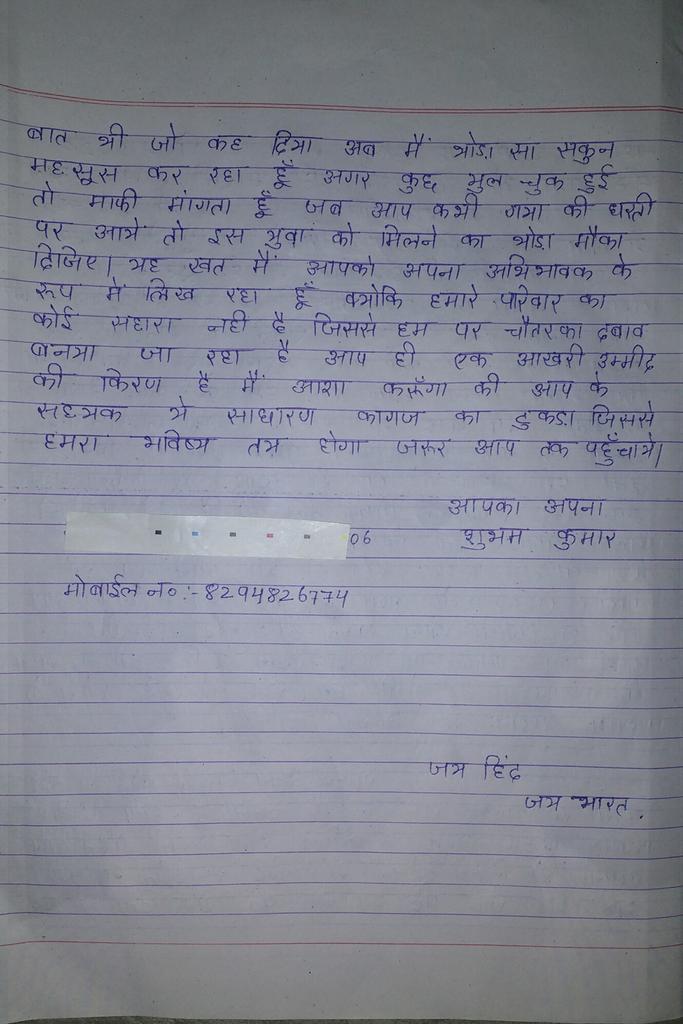 बात थी जो कह दिया अब मैं थोडा सा सकुन
महसूस कर रहा हूँ अगर कुछ भुल चुक हुई
तो माफी मांगता हूँ जब आप कभी गया की धरती
पर आये तो इस युवा को मिलने का थोडा मौका
दिजिए। यह खत मैं आपको अपना अभिभावक के
रूप में लिख रहा हूँ क्योकि हमारे परिवार का
कोई सहारा नही है जिससे हम पर चौतरका दबाव
बनया जा रहा है आप ही एक आखरी उम्मीद
की किरण है मैं आशा करूँगा की आप के
सहयक ये साधारण कागज का टुकडा जिससे
हमरा भविष्य तय होगा जरूर आप तक पहुँचाये।
आपका अपना
06 शुभम कुमार
मोबाईल न०:-8294826774
जय हिंद
जय भारत.